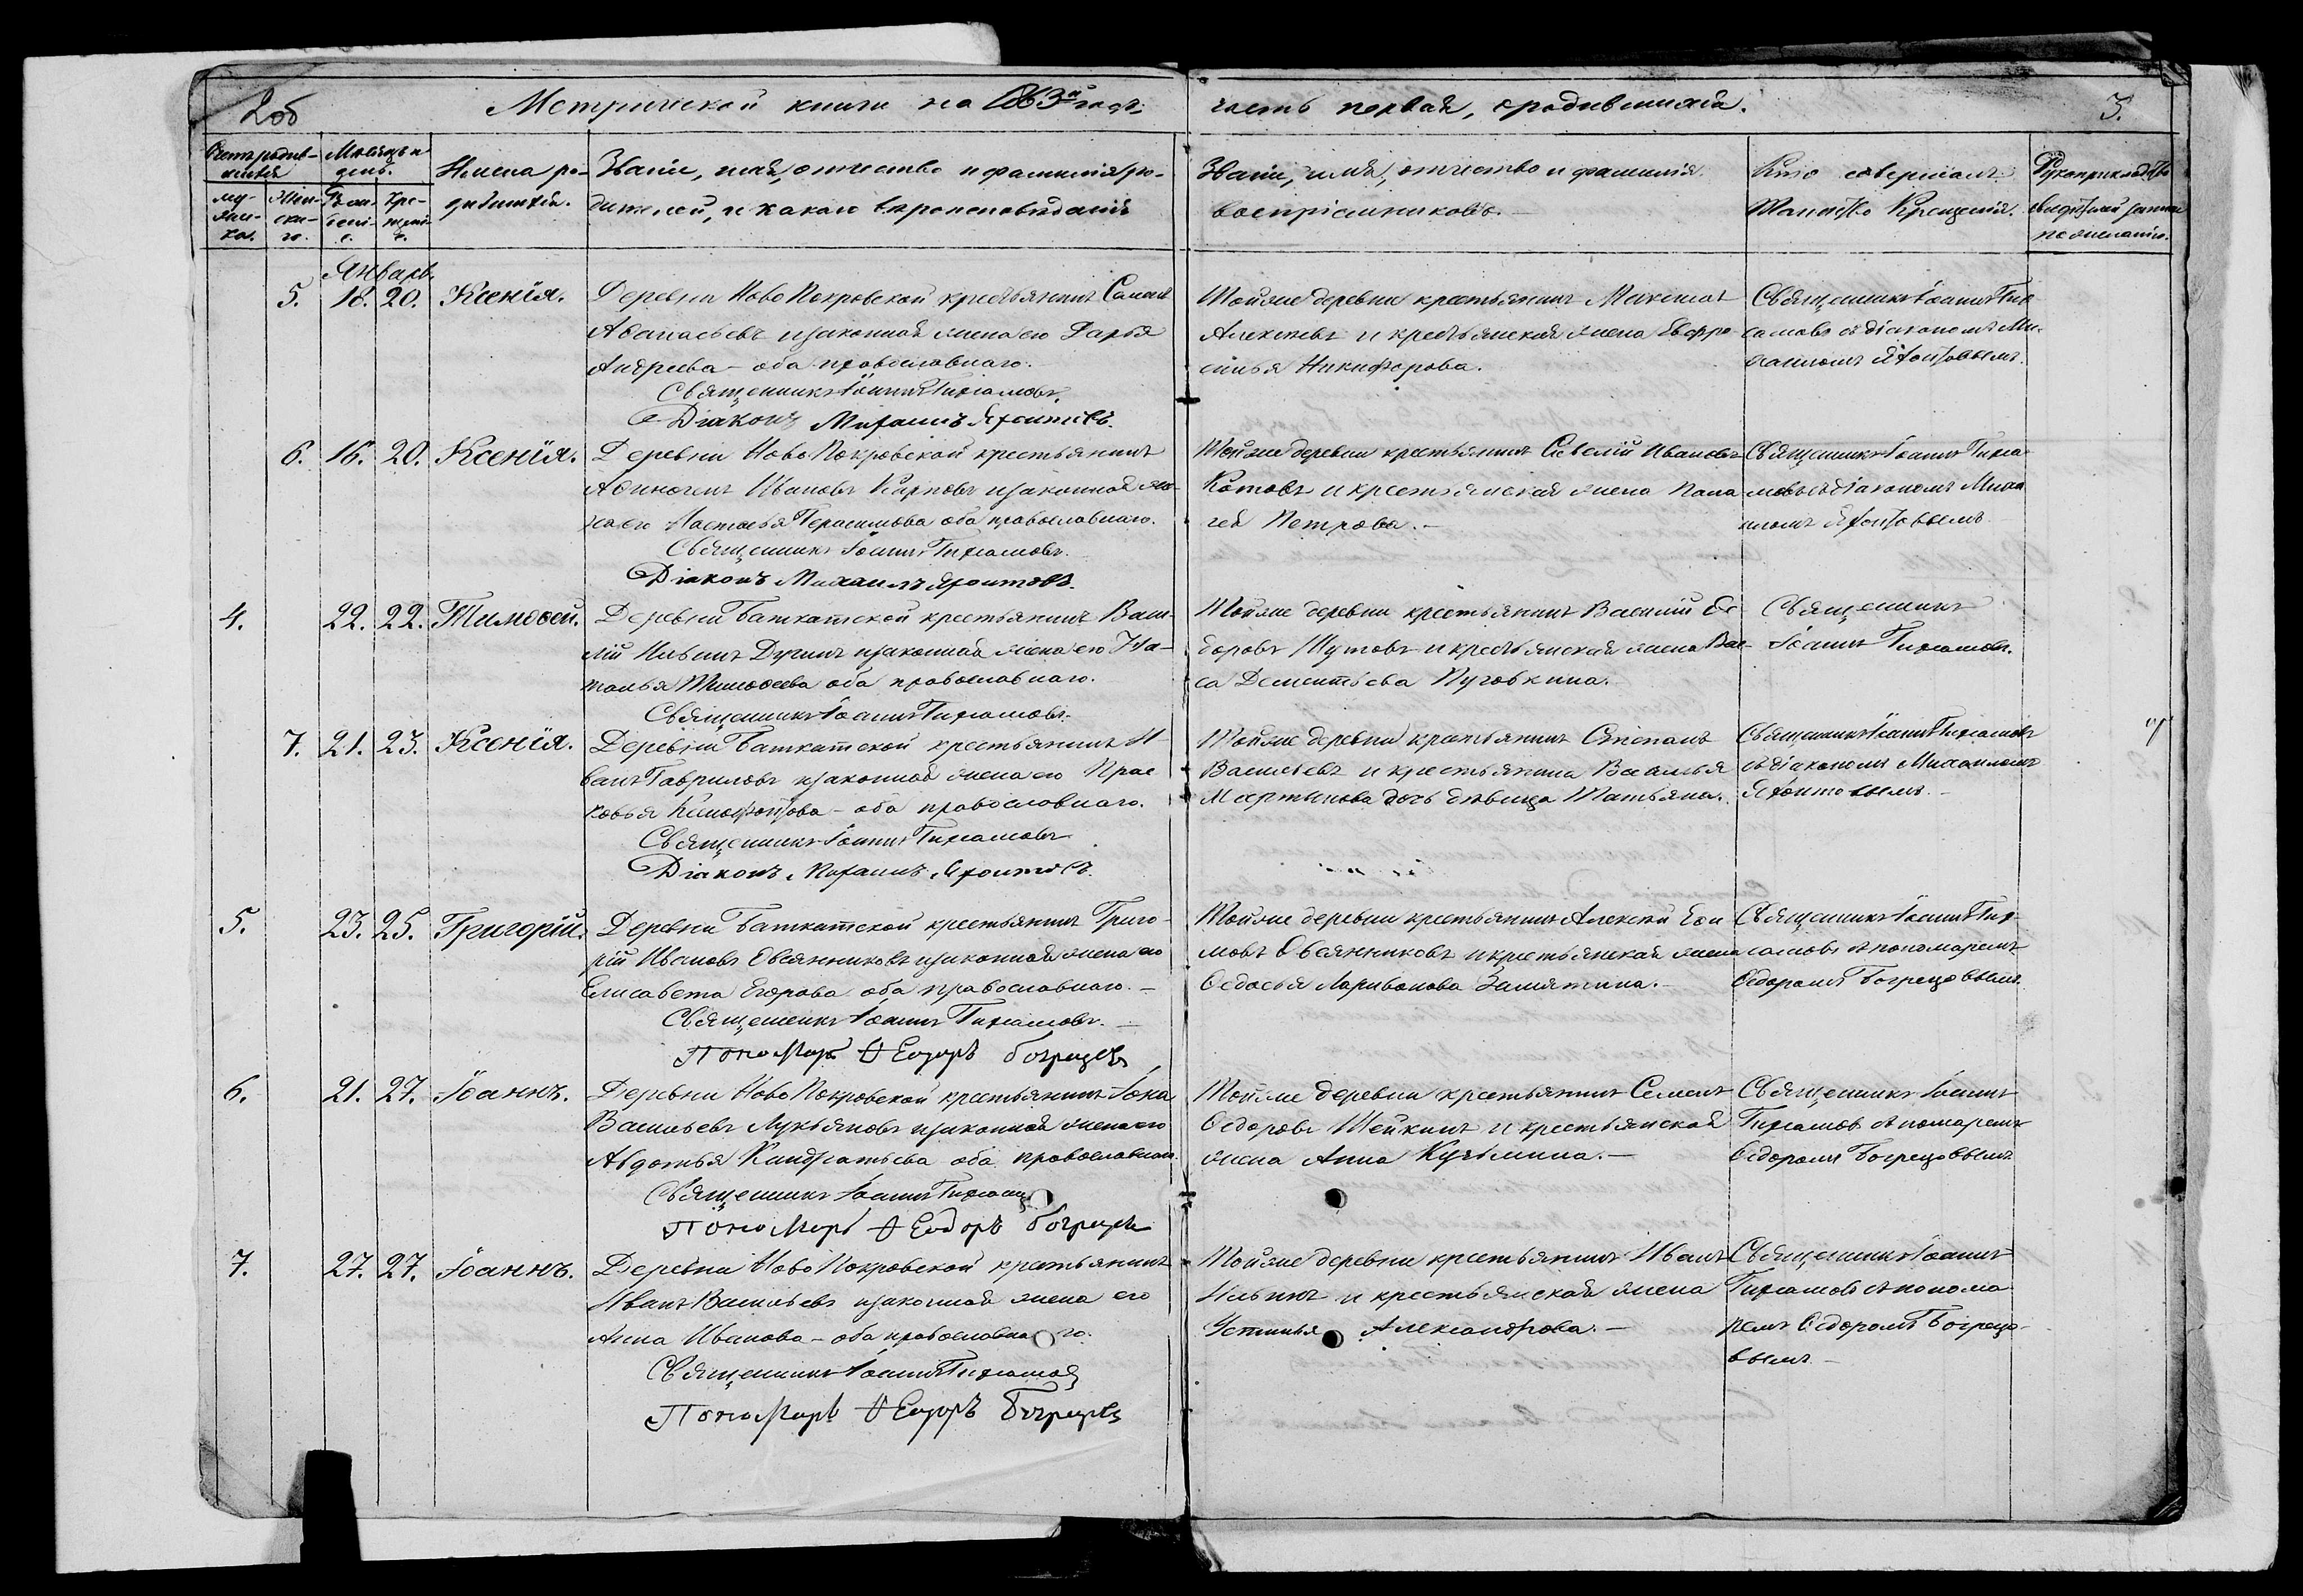 2об
Метрической книги на 1863й годъ:
часть первая, о родившихся.
3.
Счетъ родившихся
Мѣсяцъ и день.
Имена родившихся.
Званіе, имя, отчество и фамилія родителей, и какого вѣроисповѣданія
Званіе, имя, отчество и фамилія воспріемниковъ.
Кто совершалъ Таинство Крещенія.
Рукоприкладство свидѣтелей записи по желанію.
мужеска.
женскаго.
Рожденія.
Крещенія.
Январь.
5. 18. 20. Ксенія.
Деревни Ново Покровской крестьянинъ
Аѳанасьевъ и законная жена его Дарья
Андреева – оба православнаго.
Священникъ Іоаннъ Тихомовъ.
Діаконъ Михаилъ Яхонтовъ.
Тойже деревни крестьянинъ
Алексѣевъ и крестьянская жена Евфро
синья Никифорова.
Священникъ Іоаннъ Тихо
мовъ съ діакономъ Ми
хаиломъ Яхонтовымъ.
6. 16. 20. Ксенія.
Деревни Ново Покровской крестьянинъ
Аѳиногенъ Ивановъ Карповъ и законная же
на его Настасья Герасимова оба православнаго.
Священникъ Іоаннъ Тихомовъ.
Діаконъ Михаилъ Яхонтовъ.
Тойже деревни крестьянинъ Савелій Ивановъ
Котовъ и крестьянская жена Пела
гея Петрова. –
Священникъ Іоаннъ Тихо
мовъ съ діакономъ Миха
иломъ Яхонтовымъ
4. 22. 22. Тимоѳей.
Деревни Баткатской крестьянинъ Васи
лій Ильинъ Дугинъ и законная жена его На-
талья Тимоѳеева оба православнаго.
Священникъ Іоаннъ Тихомовъ.
Тойже деревни крестьянинъ Василій Ѳе
доровъ Шутовъ и крестьянская жена Вас-
са Дементьева Пуговкина.
Священникъ
Іоаннъ Тихомовъ.
7. 21. 23. Ксенія.
Деревни Баткатской крестьянинъ И
ванъ Гавриловъ и законная жена его Прас
ковья Ксенофонтова – оба православнаго.
Священникъ Іоаннъ Тихомовъ
Діаконъ Михаилъ Яхонтовъ.
Тойже деревни крестьянинъ Степанъ
Васильевъ и крестьянина Василья
Мартинова дочь дѣвица Татьяна.
Священникъ Іоаннъ Тихомовъ
съ діакономъ Михаиломъ
Яхонтовымъ. –
5. 23. 25. Григорій.
Деревни Баткатской крестьянинъ Григо
рій Ивановъ Овсянниковъ и законная жена его
Елисавета Егорова оба православнаго. –
Священникъ Іоаннъ Тихомовъ. –
Пономарь Ѳеодоръ Богрецовъ
Тойже деревни крестьянинъ Алексѣй Ефи
мовъ Овсянниковъ и крестьянская жена
Ѳедосья Ларивонова Замятина. –
Священникъ Іоаннъ Тих
омовъ съ пономаремъ
Ѳедоромъ Богрецовымъ.
6. 21. 27. Іоаннъ.
Деревни Ново Покровской крестьянинъ Іона
Васильевъ Лукьяновъ и законная жена его
Авдотья Кандратьева оба православнаго.
Священникъ Іоаннъ Тихомовъ
Пономарь Ѳеодоръ Богрецовъ
Тойже деревни крестьянинъ Семенъ
Ѳедоровъ Шейкинъ и крестьянская
жена Анна Кузьмина. –
Священникъ Іоаннъ
Тихомовъ съ помаремъ
Ѳедоромъ Богрецовымъ
7. 27. 27. Іоаннъ.
Деревни Ново Покровской крестьянинъ
Иванъ Васильевъ и законная жена его
Анна Иванова – оба православнаго.
Священникъ Іоаннъ Тихомовъ
Пономарь Ѳеодоръ Богрецовъ
Тойже деревни крестьянинъ Иванъ
Ильинъ и крестьянская жена
Устинья Александрова. –
Священникъ Іоаннъ
Тихомовъ съ понома
ремъ Ѳедоромъ Богрецо-
вымъ. –